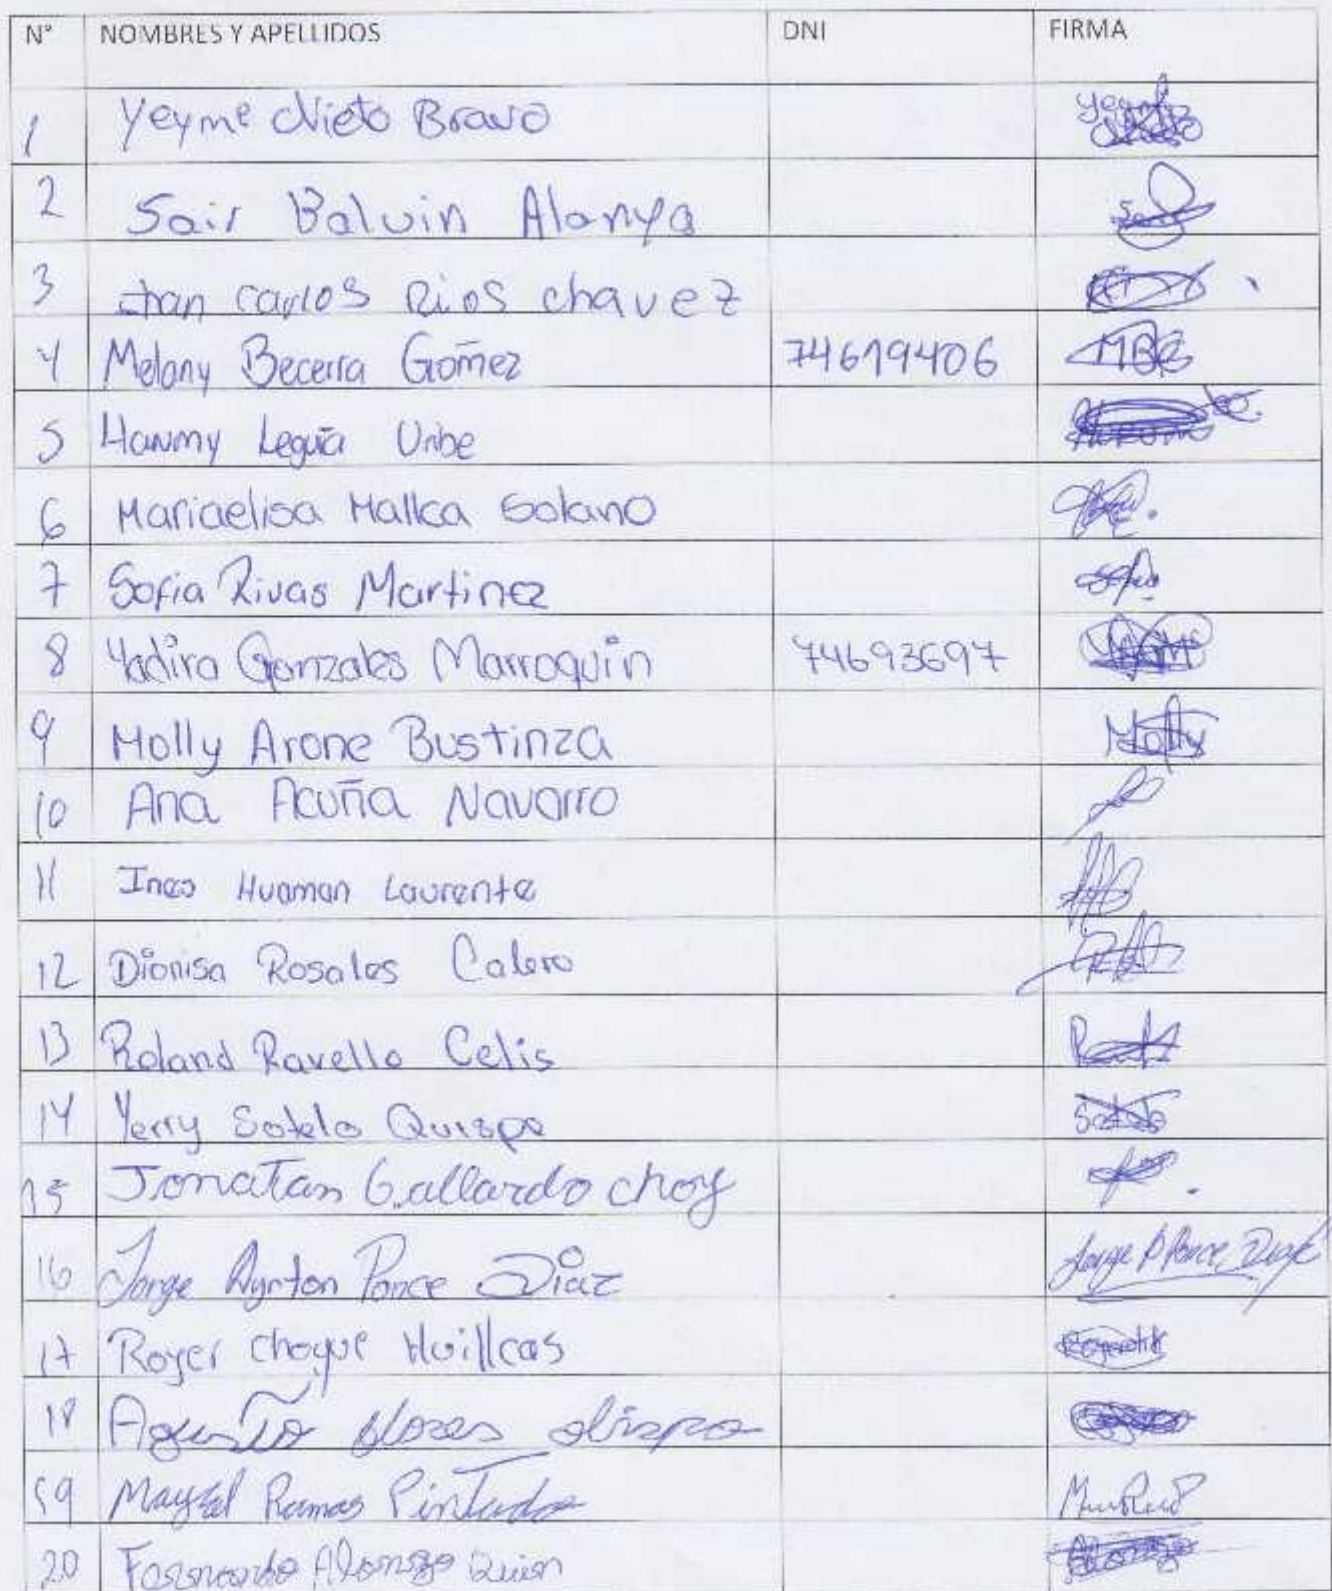 N° NOMBRES Y APELLIDOS DNI FIRMA
1 Yeyme Nieto Bravo
2 Sair Balvin Alanya
3 Jhan carlos Rios chavez
4 Melany Becerra Gómez 74619406 MBG
5 Hanmy Leguía Uribe
6 Mariaelisa Mallca Solano
7 Sofia Rivas Martinez Sofia
8 Yadira Gonzales Marroquín 74693697
9 Molly Arone Bustinza Molly
10 Ana Acuña Navarro
11 Ines Huaman Laurente
12 Dionisa Rosales Calero
13 Roland Ravello Celis
14 Yerry Sotelo Quispe Sotelo
15 Jonatan Gallardo choy
16 Jorge Ayrton Ponce Diaz Jorge A Ponce Diaz
17 Royer choque Huillcas
18 Agusto flores obispo
19 Ramos Pintado
20 Alonzo